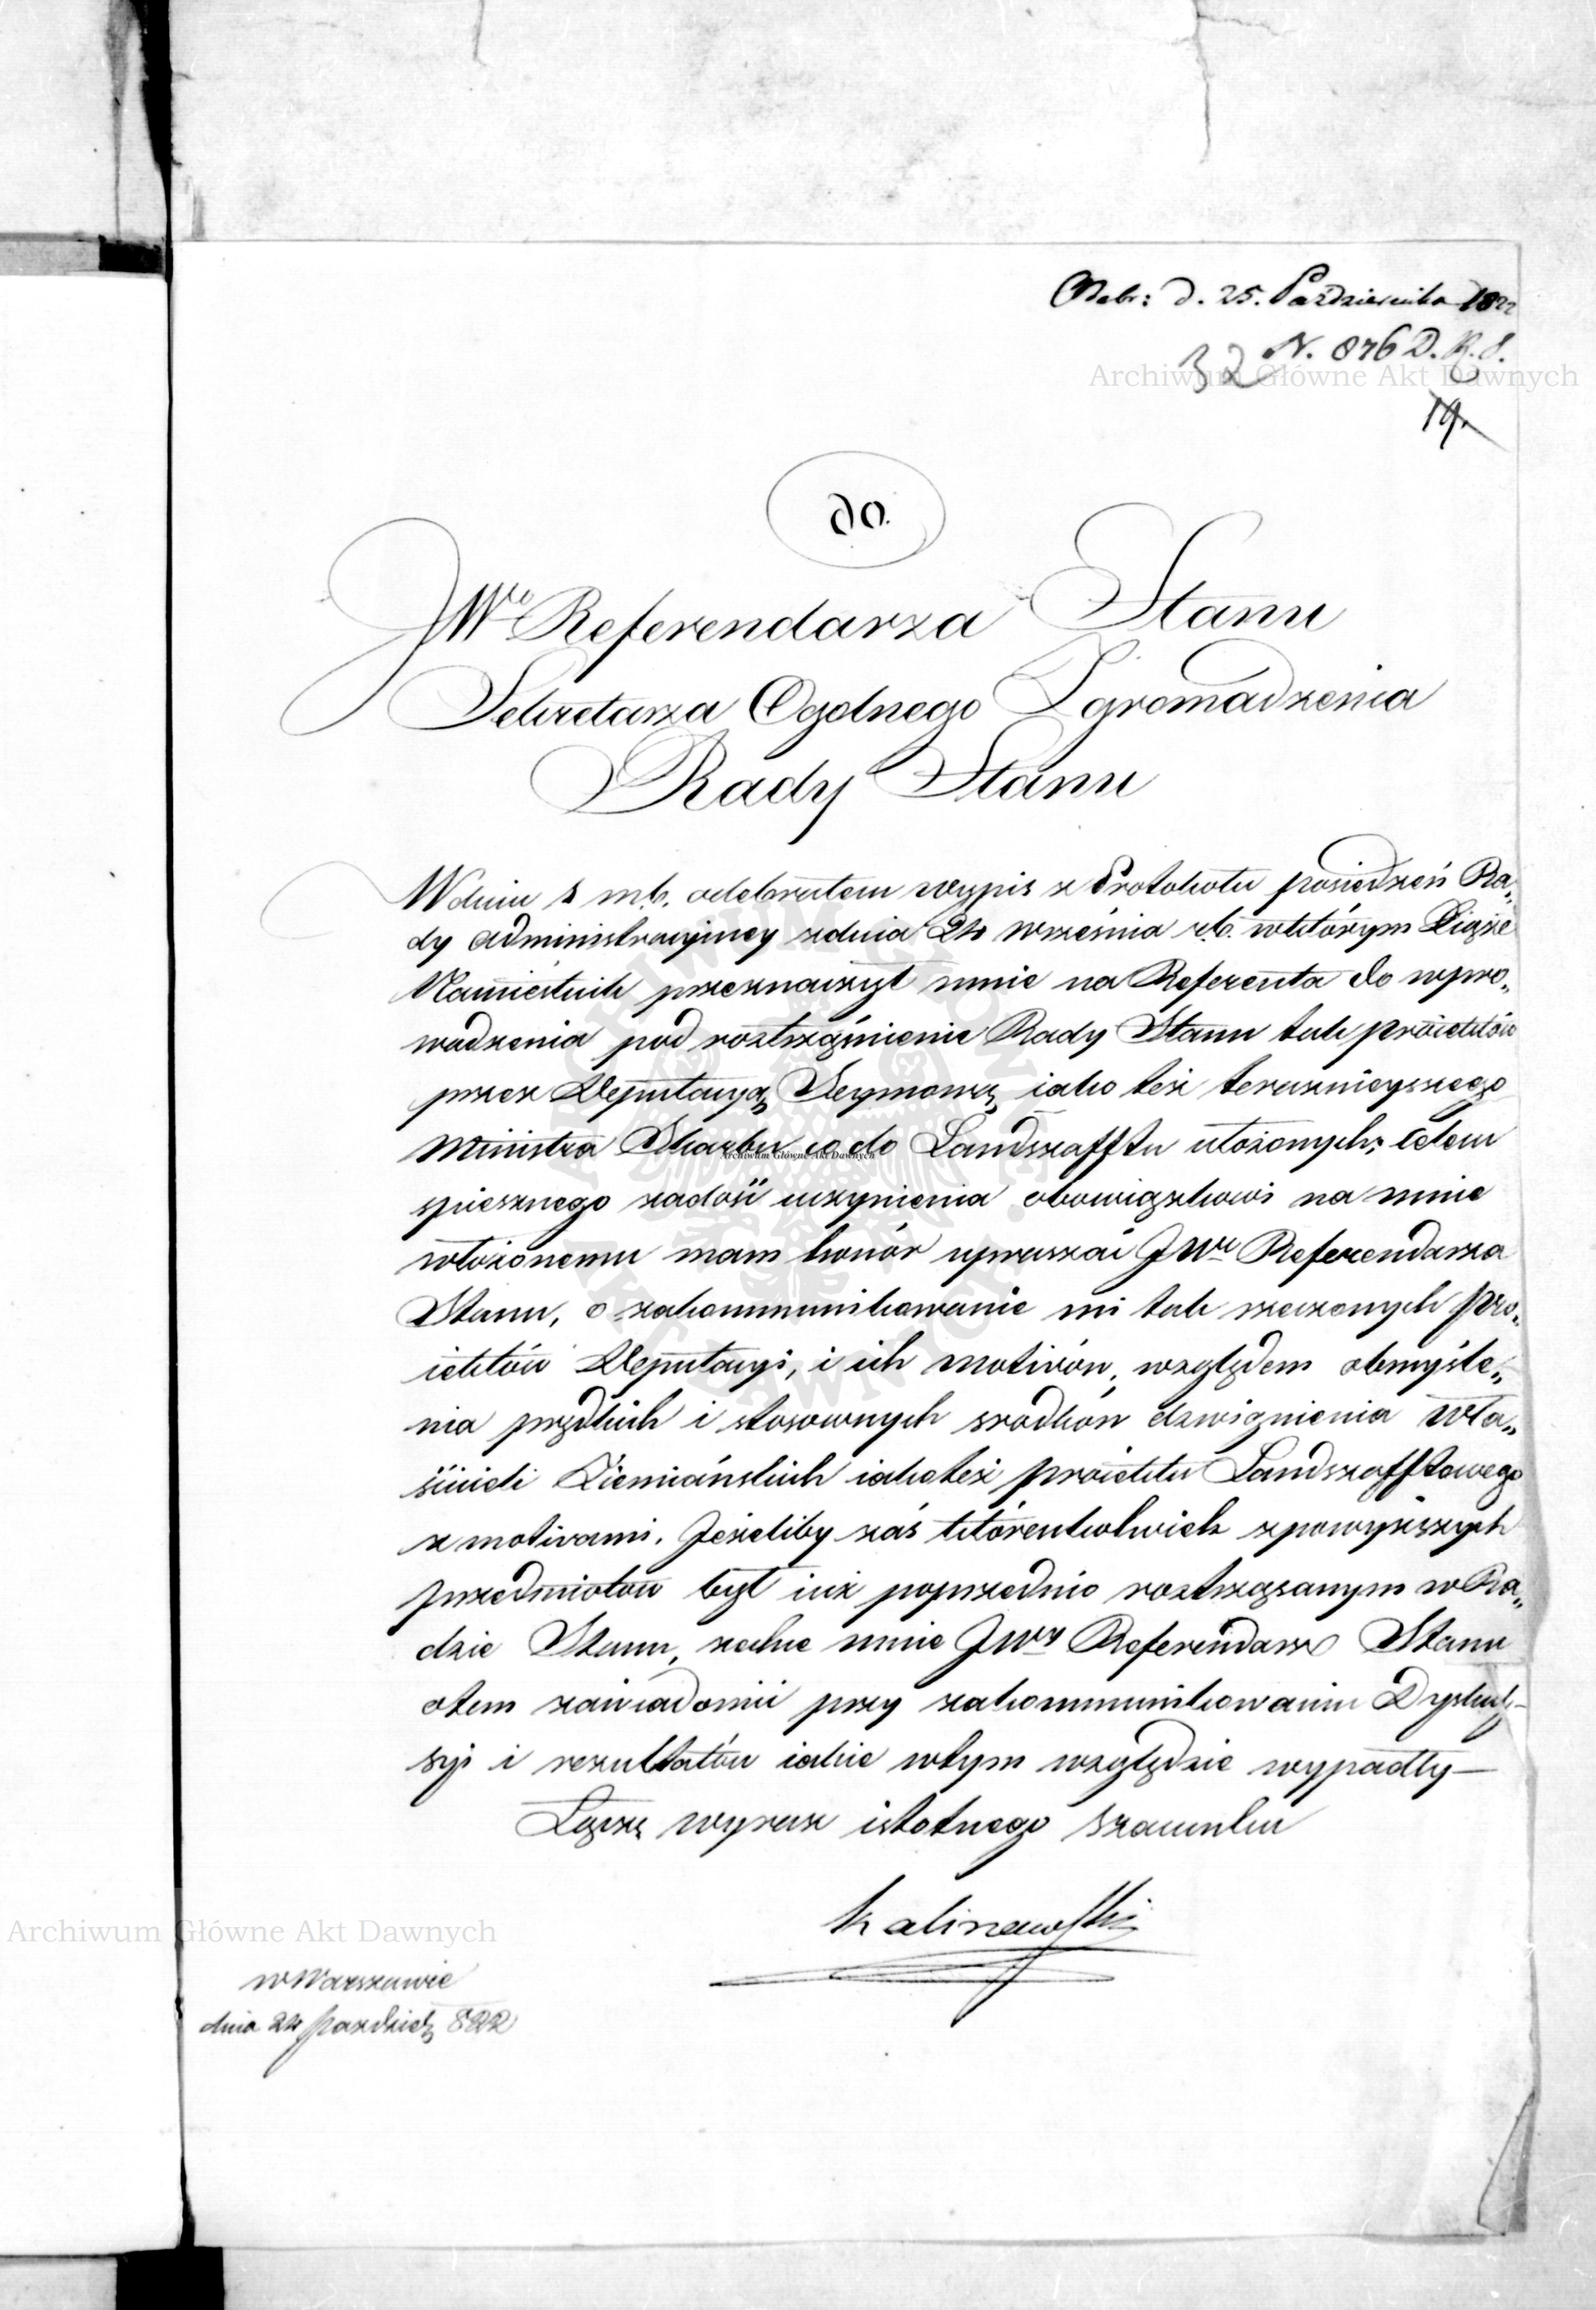 Odebr: d. 25. Października 1822
N. 876 D.R.S.
32
19.
do.
JWo Referendarza Stanu
Sekretarza Ogolnego Zgromadzenia
Rady Stanu
W dniu 5 m.b. odebrałem wypis z Protokołu posiedzeń Ra„
dy Administracyiney zdnia 24 września r.b. wktórym Xiąże
Namiestnik przeznaczył mnie na Referenta do wpro„
wadzenia pod roztrząśnienie Rady Stanu tak proiektów
przez Deputacyą Seymową iako też teraznieyszego
Ministra Skarbu co do Landszafftu ułożonych; celem
spiesznego zadość uczynienia obowiązkowi na mnie
włożonemu mam honór upraszać JWo Referendarza
Stanu, o zakommunikowanie mi tak rzeczonych pro„
iektów Deputacyi, i ich motivów, względem obmyśle„
nia prędkich i stosownych srodków dzwignienia Wła„
ścicieli Ziemiańskich iako też proiektu Landszafftowego
z motivami. Jeżeliby zaś którenkolwiek zpowyższych
przedmiotów był iuż poprzednio roztrząsanym w Ra„
dzie Stanu, zechce mnie JWny Referendarz Stanu
otem zawiadomić przy zakommunikowaniu Dyskus-
syi i rezultatów iakie wtym względzie wypadły—
Łączę wyraz istotnego szacunku
Kalinowski
w Warszawie
dnia 24 Pazdzier 822
Archiwum Główne Akt Dawnych
Archiwum Główne Akt Dawnych
Archiwum Główne Akt Dawnych